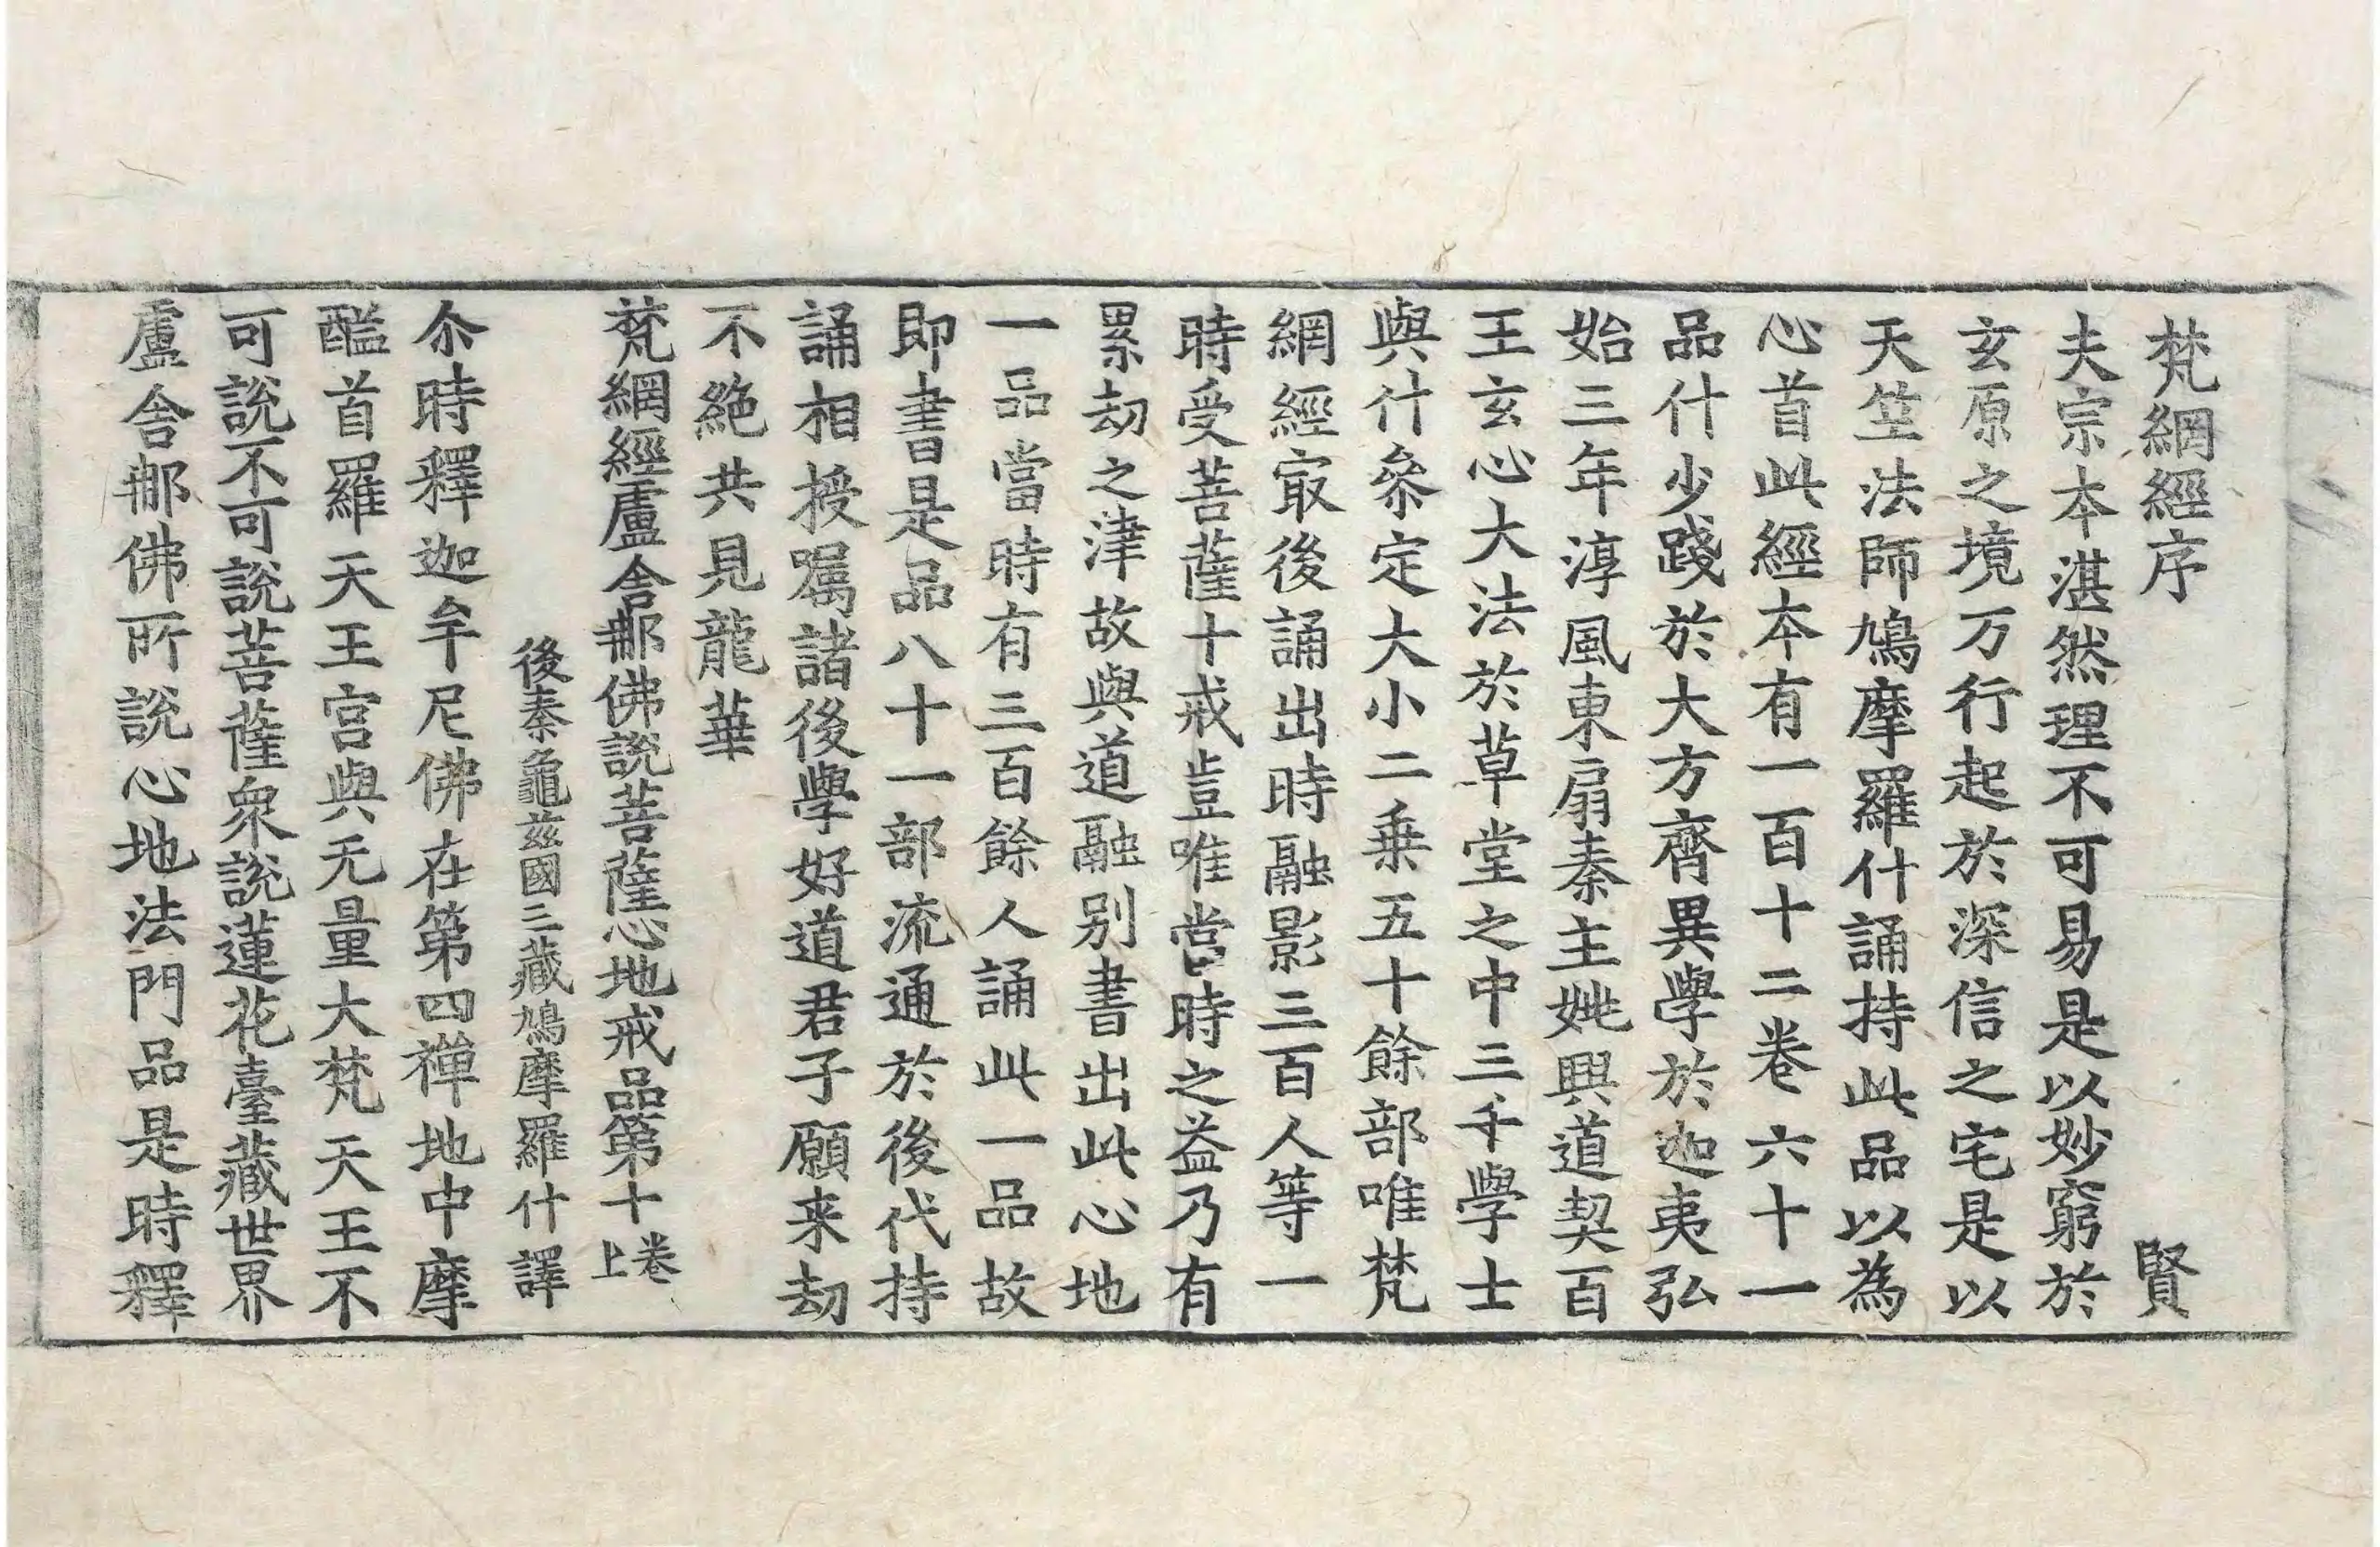 梵網經序 賢
夫宗本湛然理不可易是以妙窮於
玄原之境万行起於深信之宅是以
天竺法師鳩摩羅什誦持此品以為
心首此經本有一百十二卷六十一
品什少踐於大方齊異學於迦夷弘
始三年淳風東扇秦主姚興道契百
王玄心大法於草堂之中三千學士
與什叅定大小二乗五十餘部唯梵
網經㝡後誦出時融影三百人等一
時受菩薩十戒豈唯當時之益乃有
累劫之津故與道融別書出此心地
一品當時有三百餘人誦此一品故
即書是品八十一部流通於後代持
誦相授屬諸後學好道君子願来劫
不絕共見龍華
梵網經盧舍那佛說菩薩心地戒品第十卷上
後秦龜茲國三藏鳩摩羅什譯
尒時釋迦牟尼佛在第四禪地中摩
醯首羅天王宮與无量大梵天王不
可說不可說菩薩衆說蓮花臺藏世界
盧舍那佛所說心地法門品是時釋